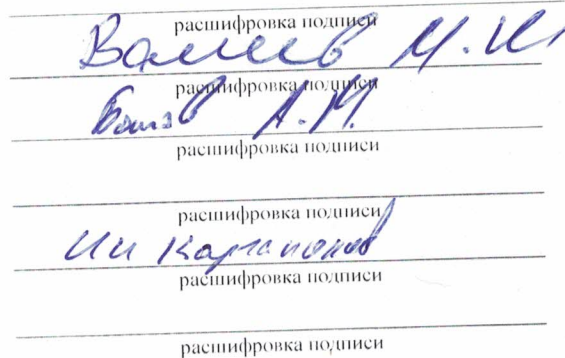 расшифровка подписи
Валиев М.И
расшифровка подписи
А.М.
расшифровка подписи
расшифровка подписи
расшифровка подписи
расшифровка подписи